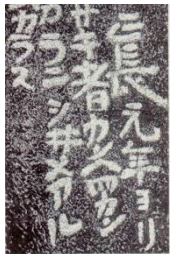 正長元年ヨリ
サキ者カンヘ四カン
カウニヲヰメアル
ヘカラス